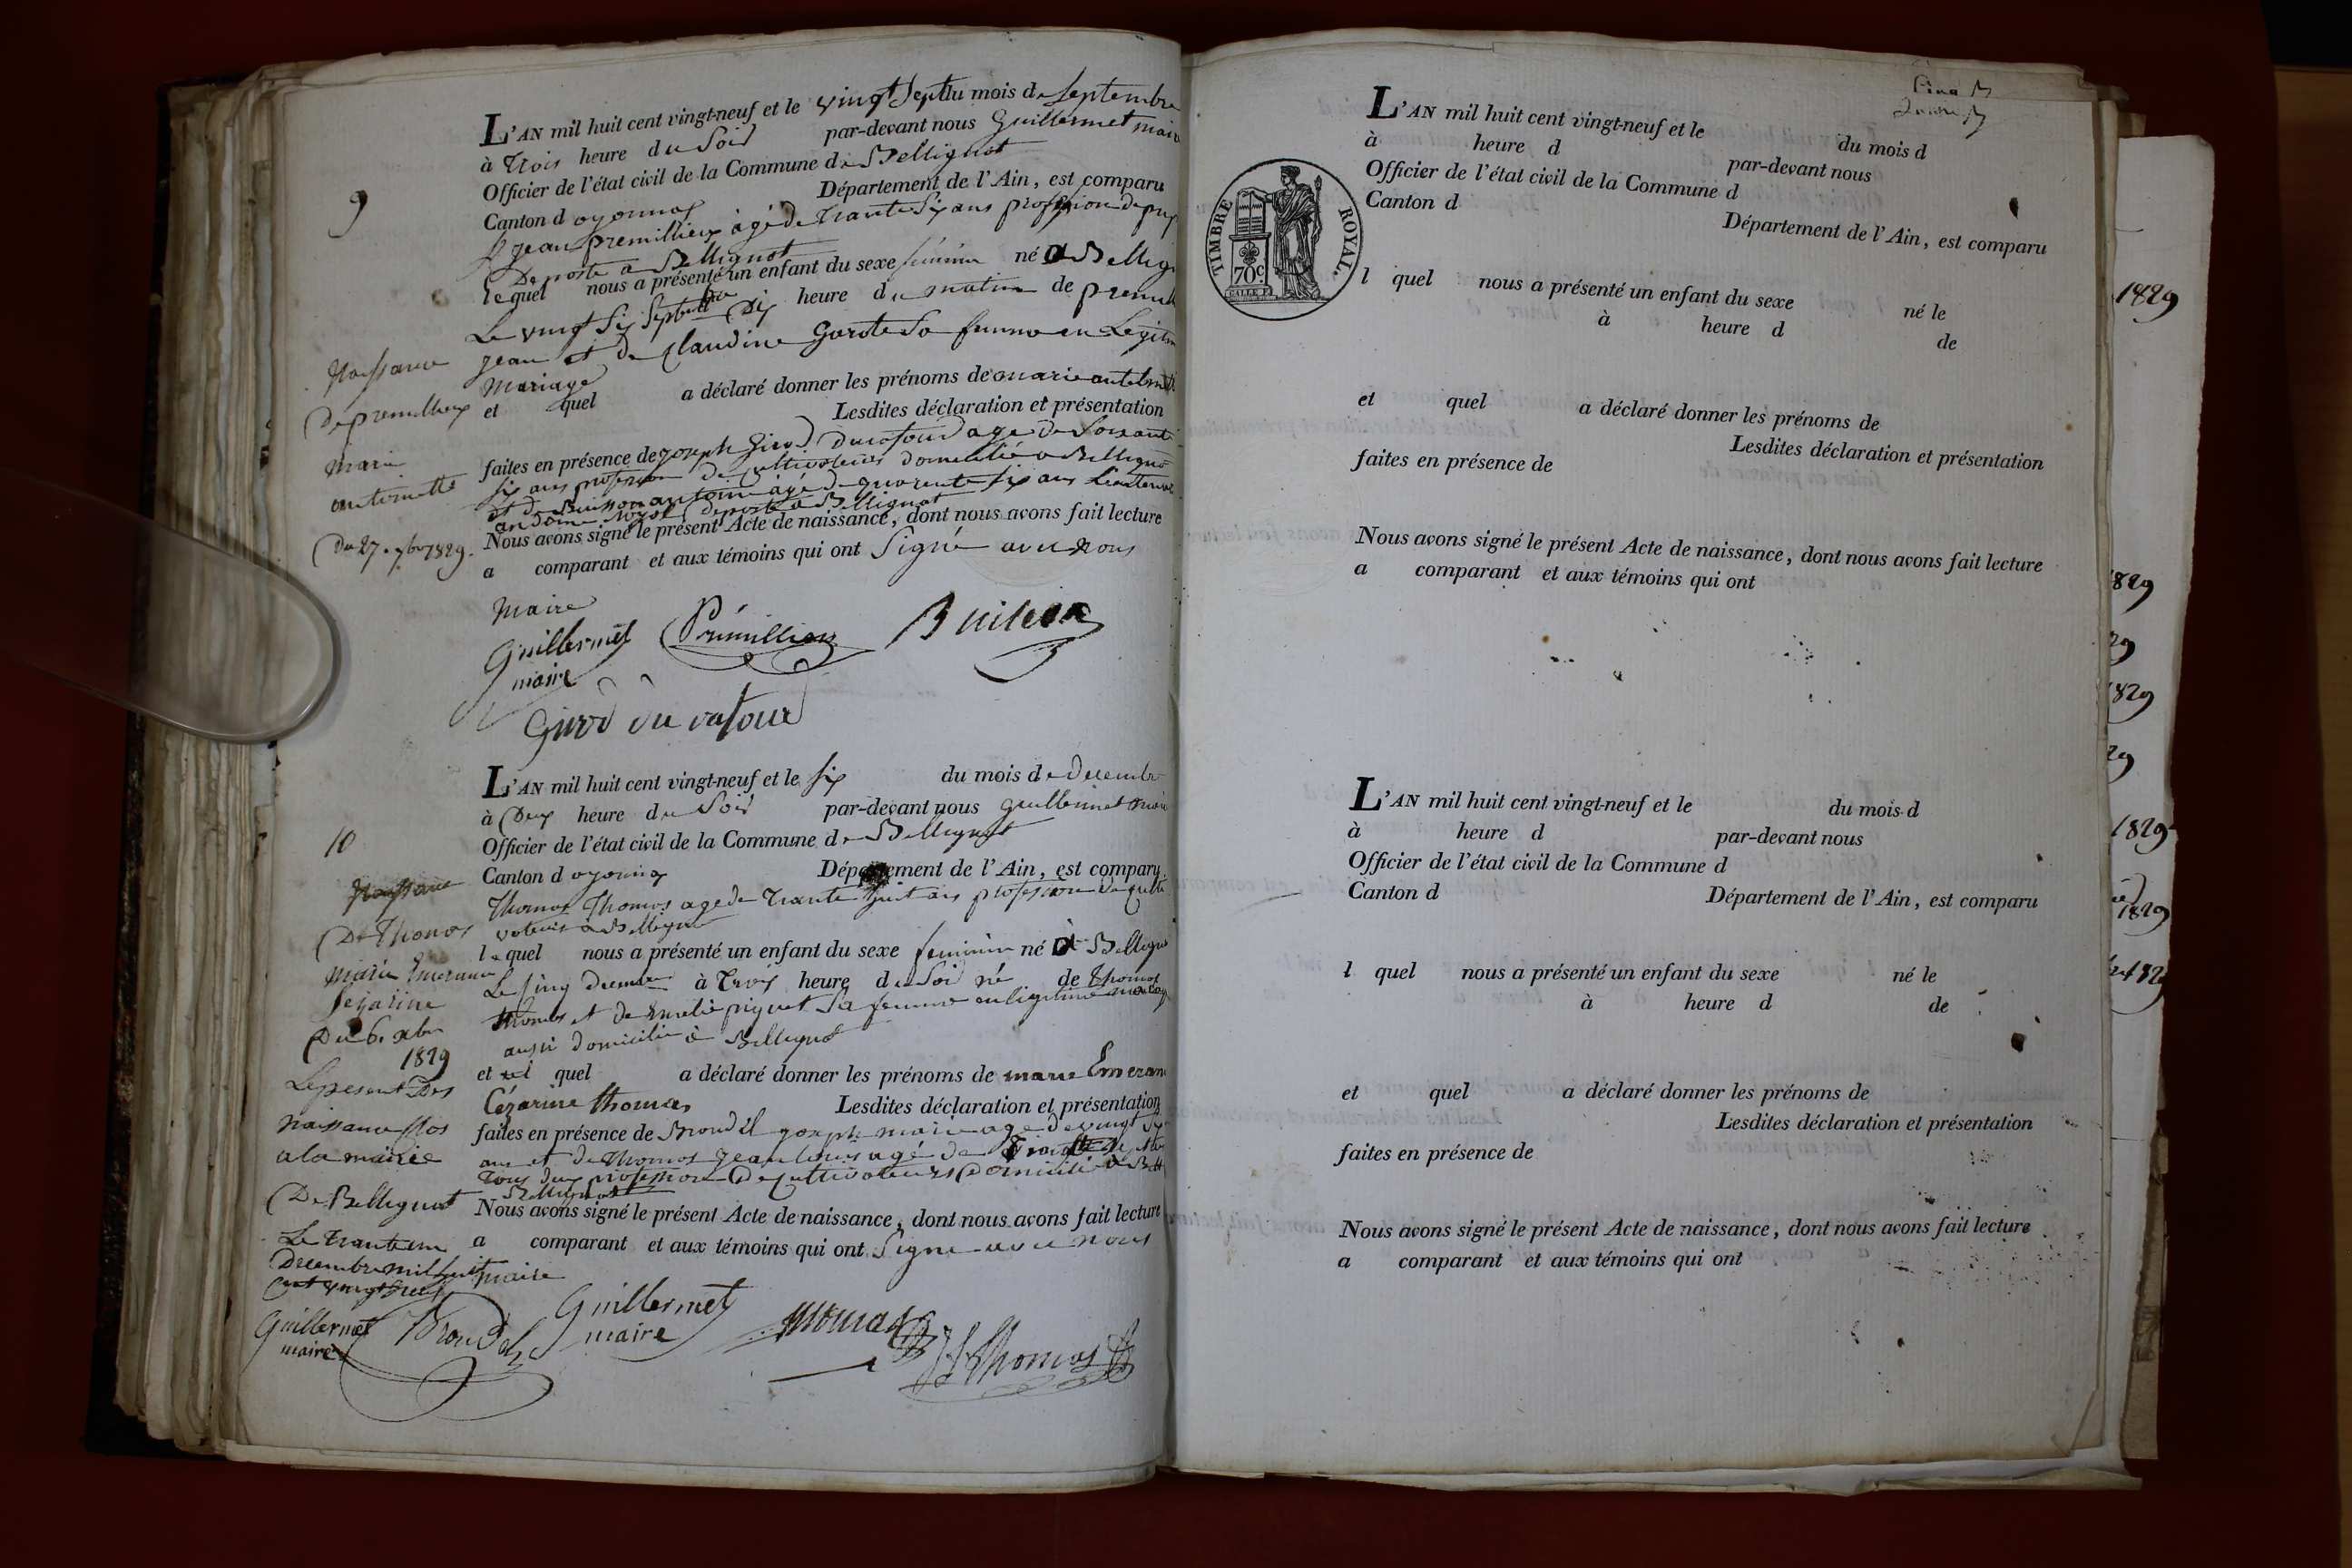 9
L'AN mil huit cent vingt-neuf et le vingt sept du mois de Septembre
à trois heure du Soir par-devant nous Guillermet maire
Officier de l'état civil de la Commune de Bellignat
Canton d oyonnax Département de l'Ain, est comparu
jean premillieux âgé de trante six ans profession de
De poste a Bellignat
lequel nous a présenté un enfant du sexe féminin né a Bellig
Le vingt six Septembre Dix heure du matin de premil
jean et de Claudine Garote Sa femme en Legitim
mariage
et quel a déclaré donner les prénoms de marie
Lesdites déclaration et présentation
faites en présence de joseph Girod age de Soixante
six ans profession de Cultivateur domicilié a Bellignat
et de Buisson antoine âgé de quarente six ans
a Bellignat
Nous avons signé le présent Acte de naissance, dont nous avons fait lecture
a comparant et aux témoins qui ont Signé avec nous
maire
Naissance
De premillieux
marie
antoinette
Du 27. 7bre 1829.
Guillermet Prémillieux Buisson
maire
Girod du
10
L'AN mil huit cent vingt-neuf et le six du mois de decembre
à Deux heure du Soir par-devant nous guillermet maire
Officier de l'état civil de la Commune de Bellignat
Canton d oyonnax Département de l'Ain, est comparu
Thomas Thomas age de trante huit ans profession de culti
vateur a Bellignat
lequel nous a présenté un enfant du sexe feminin né à Bellignat
Le cinq decembre à trois heure du Soir né de Thomas
thomas et de Emelie piquet Sa femme en ligitime mariage
aussi domicilié à Bellignat
et quel a déclaré donner les prénoms de marie Emeran
Cézarine thomas Lesdites déclaration et présentation
faites en présence de Broudel joseph marie age de vingt six
ans et de Thomas jean louis agé de
tous deux profession De Cultivateurs Domicilié à
Bellignat
Nous avons signé le présent Acte de naissance, dont nous avons fait lecture
a comparant et aux témoins qui ont Signé avec nous
maire
Naissance
De Thomas
marie Emeranse
Sezarine
Du 6. xbre
1829
Le present Des
naissance Clos
a la mairie
De Bellignat
Le trante un
Decembre mil huit
cent vingt neuf
Guillermet
maire
Broudel Guillermet maire thomas J L Thomas
L'AN mil huit cent vingt-neuf et le du mois d
à heure d par-devant nous
Officier de l'état civil de la Commune d
Canton d Département de l'Ain, est comparu
TIMBRE ROYAL.
70c
l quel nous a présenté un enfant du sexe né le
à heure d de
et quel a déclaré donner les prénoms de
Lesdites déclaration et présentation
faites en présence de
Nous avons signé le présent Acte de naissance, dont nous avons fait lecture
a comparant et aux témoins qui ont
L'AN mil huit cent vingt-neuf et le du mois d
à heure d par-devant nous
Officier de l'état civil de la Commune d
Canton d Département de l'Ain, est comparu
l quel nous a présenté un enfant du sexe né le
à heure d de
et quel a déclaré donner les prénoms de
Lesdites déclaration et présentation
faites en présence de
Nous avons signé le présent Acte de naissance, dont nous avons fait lecture
a comparant et aux témoins qui ont
1829
829
29
829
29
1829
1829